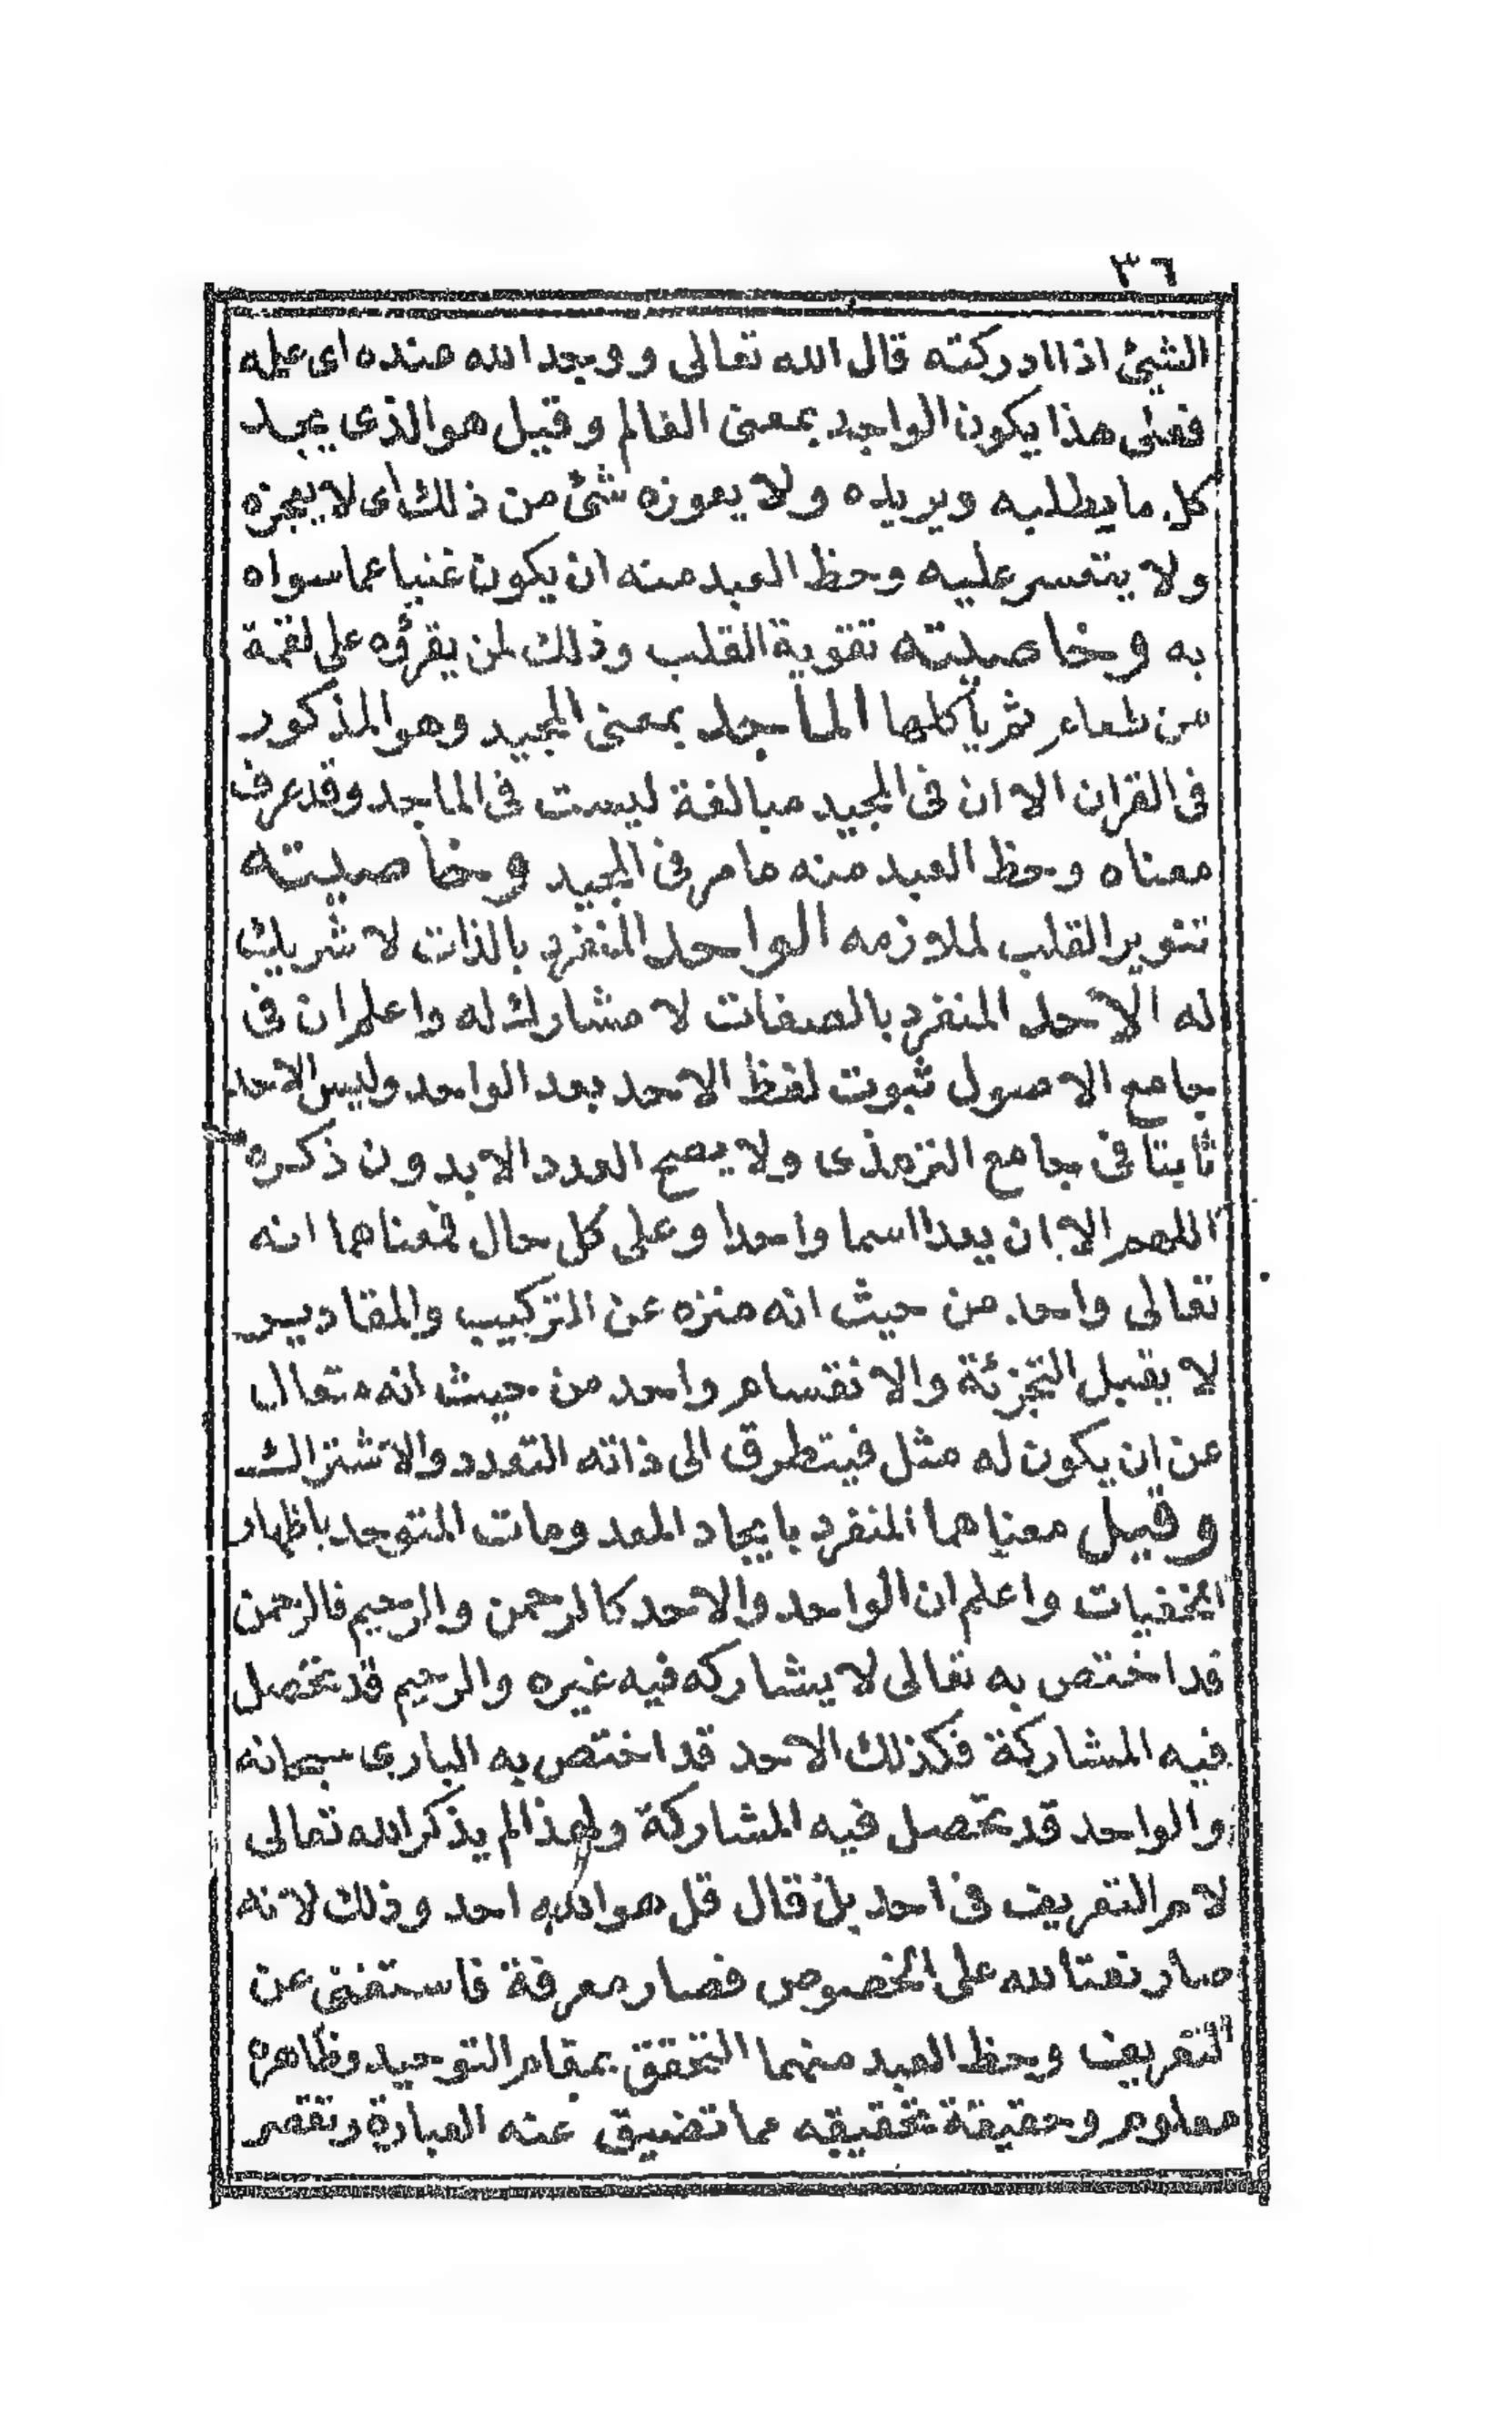 ٣٦
الشيئ اذا ادركته قال الله تعالى ووجد الله عنده اى عمله
فعلى هذا يكون الواجد بمعنى العالم وقيل هو الذى يجد
كل ما يطلبه ويريده ولا يعوزه شئ من ذلك اى لا يعجزه
ولا يتعسر عليه وحظ العبد منه ان يكون غنيا عما سواه
به وخاصيته تقوية القلب وذلك لمن يقرؤه على لقمة
من طعام ثم يأكلها الماجد بمعنى المجيد وهو المذكور
فى القران الا ان فى المجيد مبالغة ليست فى الماجد وقد عرف
معناه وحظ العبد منه ما مر فى المجيد وخاصيته
تنوير القلب لملازمه الواحد المنفرد بالذات لا شريك
له الاحد المنفرد بالصفات لا مشارك له واعلم ان فى
جامع الاصول ثبوت لفظ الاحد بعد الواحد وليس الاحد
ثابتا فى جامع الترمذى ولا يصح العدد الا بدون ذكره
اللهم الا ان يعدا اسما واحدا وعلى كل حال فمعناهما انه
تعالى واحد من حيث انه منزه عن التركيب والمقادير
لا يقبل التجزئة والانقسام واحد من حيث انه متعال
عن ان يكون له مثل فيتطرق الى ذاته التعدد والاشتراك
وقيل معناهما المنفرد بايجاد المعدومات المتوحد باظهار
الخفيات واعلم ان الواحد والاحد كالرحمن والرحيم فالرحمن
قد اختص به تعالى لا يشاركه فيه غيره والرحيم قد تحصل
فيه المشاركة فكذلك الاحد قد اختص به البارى سبحانه
والواحد قد تحصل فيه المشاركة ولهذا لم يذكر الله تعالى
لام التعريف فى احد بل قال قل هو الله احد وذلك لانه
صار نعتا لله على الخصوص فصار معرفة فاستغنى عن
التعريف وحظ العبد منهما التحقق بمقام التوحيد وظاهره
معلوم وحقيقة تحقيقه مما تضيق عنه العبارة وتقصر